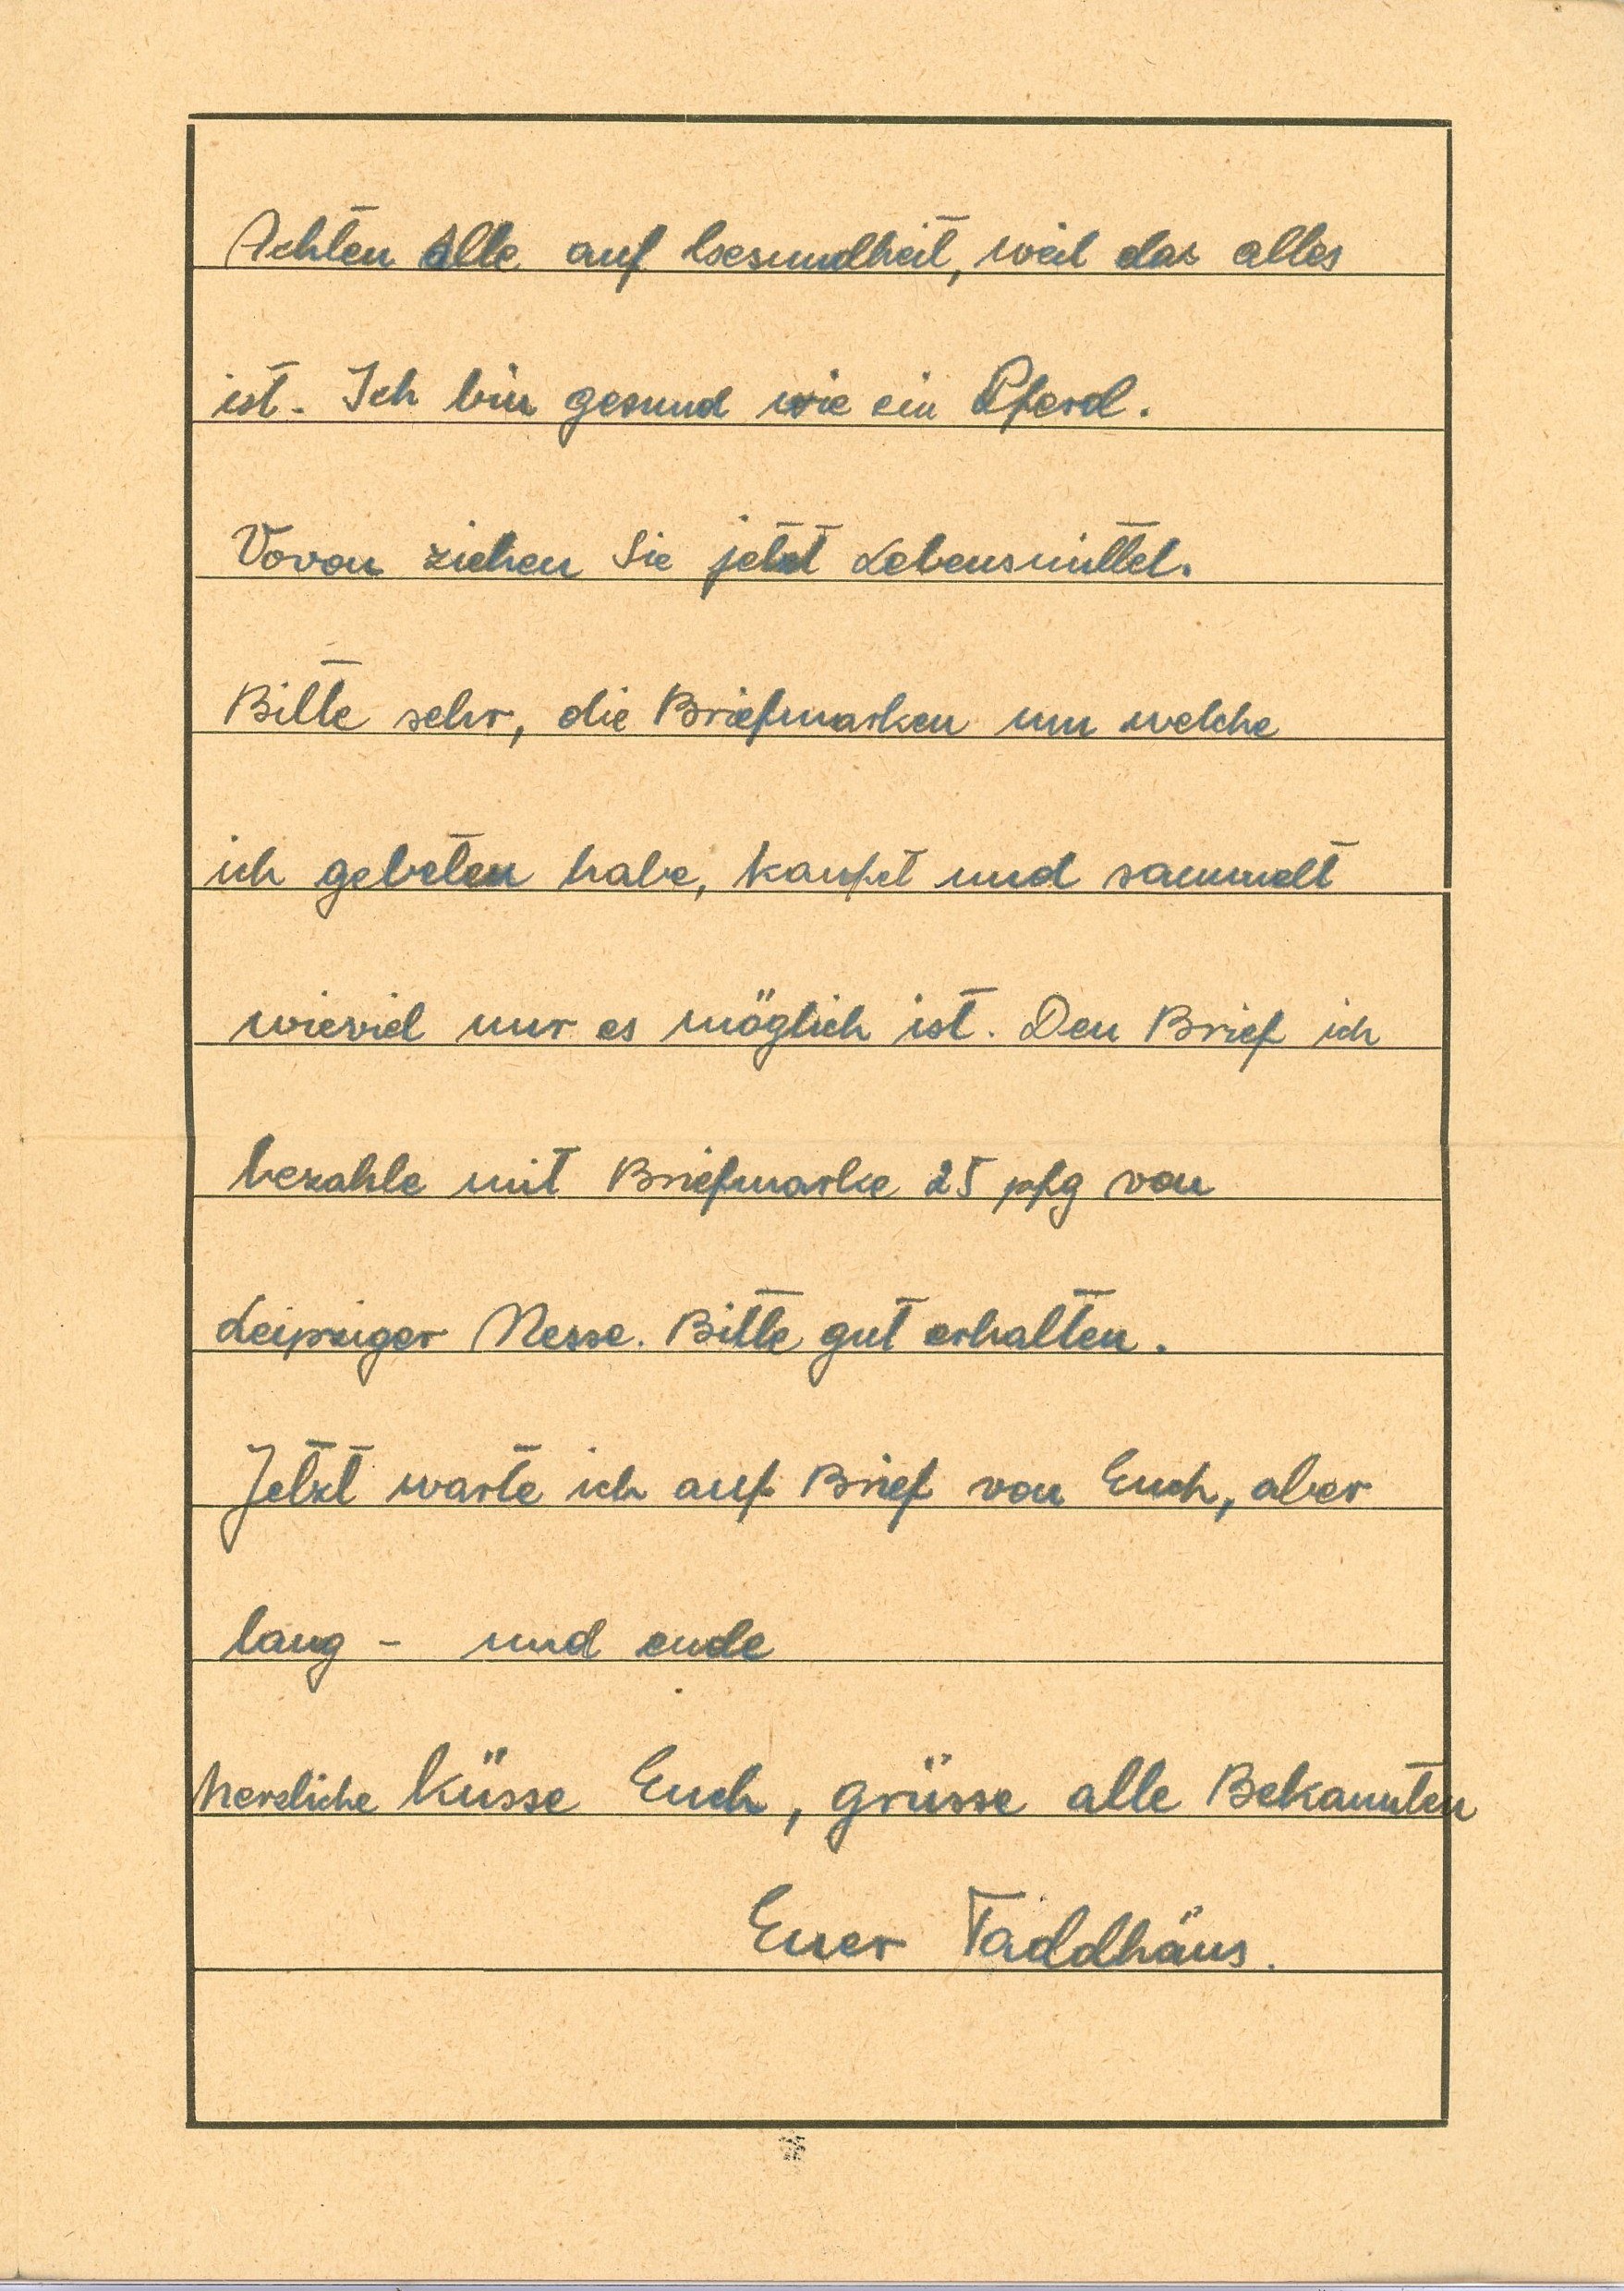 Achten Alle auf Gesundheit, weil das alles
ist. Ich bin gesund wie ein Pferd.
Vovon ziehen Sie jetzt Lebensmittel.
Bitte sehr, die Briefmarken um welche
ich gebeten habe, kaufet und sammelt
wieviel nur es möglich ist. Den Brief ich
bezahle mit Briefmarke 25 pfg von
Leipziger Messe. Bitte gut erhalten.
Jetzt warte ich auf Brief von Euch, aber
lang - und ende
herzliche küsse Euch, grüsse alle Bekannten
Euer Taddhäus.